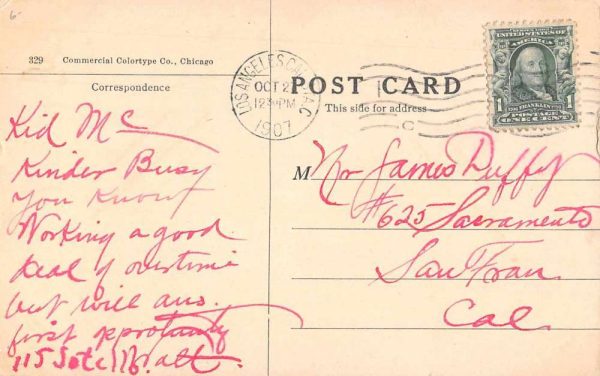 6-
329 Commercial Colortype Co., Chicago
Correspondence
POST CARD
This side for address
LOS ANGELES, CAL.
OCT 2
12 PM
1907
UNITED STATES OF AMERICA
FRANKLIN
POSTAGE
1 ONE CENT 1
Kid Mc
Kinder Busy
You Know
Working a good
deal of overtime
but will ans.
first
115
M Mr James Duffy
#625 Sacramento
San Fran.
Cal.